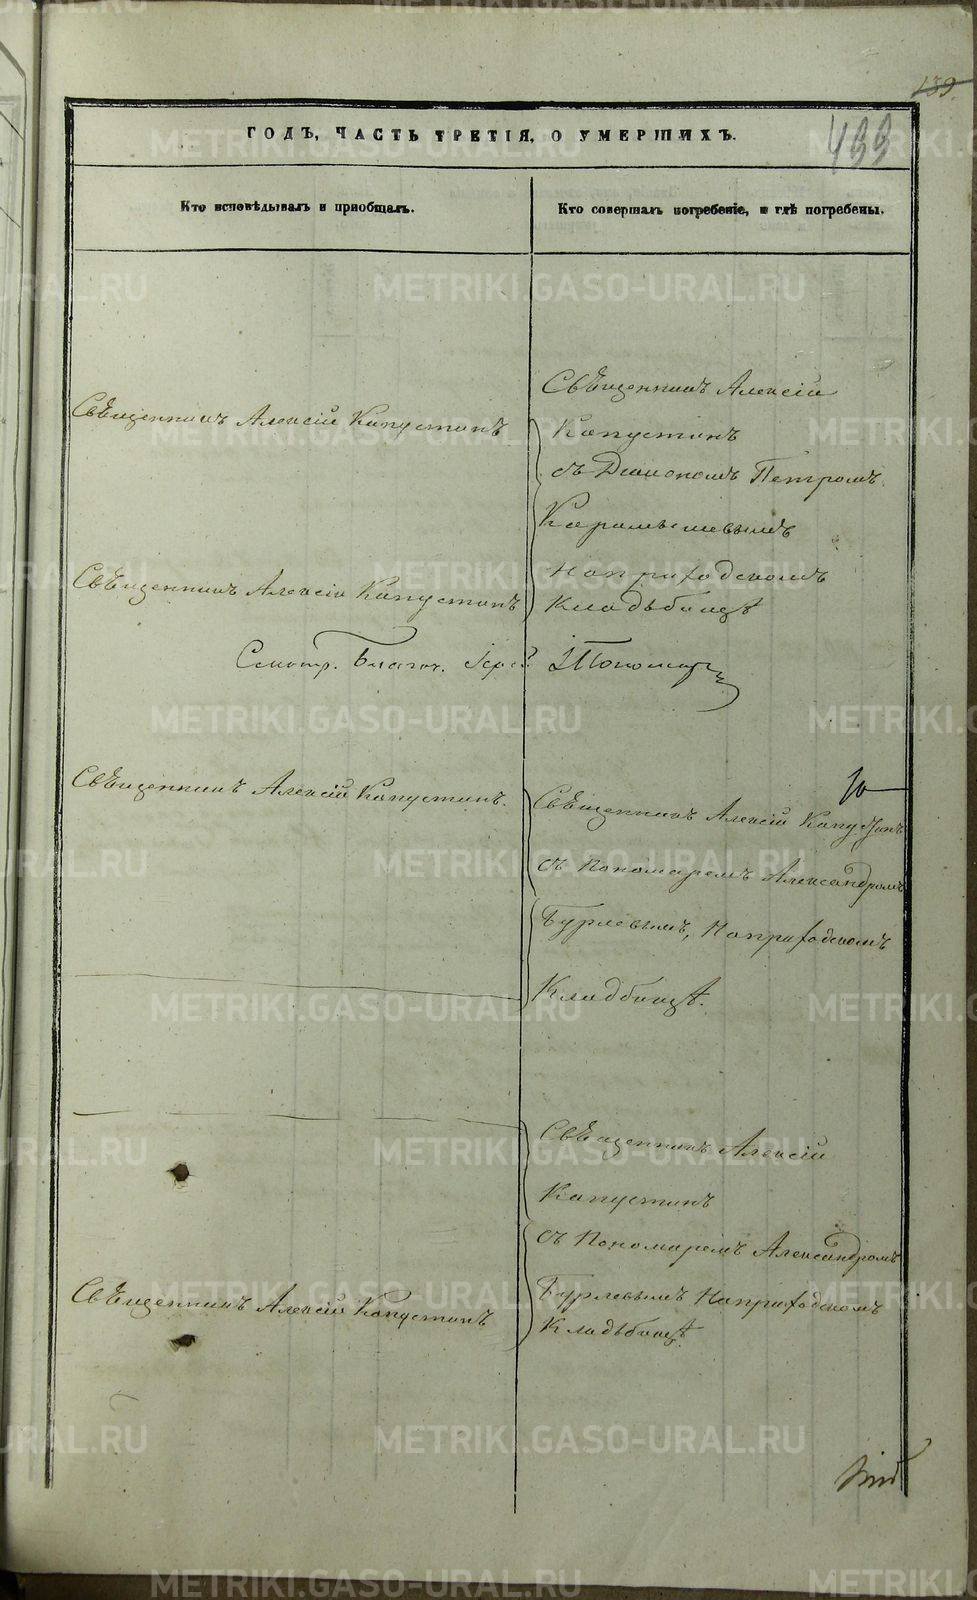 139
ГОДЪ, ЧАСТЬ ТРЕТІЯ, О УМЕРШИХЪ.
499
Кто исповѣдывалъ и пріобщалъ.
Кто совершалъ погребеніе, и гдѣ погребены.
Священникъ Алексій Капустинъ
Священникъ Алексій
Капустинъ
съ Діакономъ Петромъ
Карамышевымъ
Священникъ Алексій Капустинъ
На приходскомъ
кладьбищѣ
Смотр. Благоч. Іерей Пономарев
Священникъ Алексій Капустинъ.
Священникъ Алексій Капустинъ
съ Пономаремъ Александромъ
Бурлевымъ, На приходскомъ
Кладбищѣ.
Священникъ Алексій
Капустинъ
съ Пономаремъ Александромъ
Священникъ Алексій Капустинъ
Бурлевымъ На приходскомъ
Кладьбищѣ.
METRIKI.GASO-URAL.RU